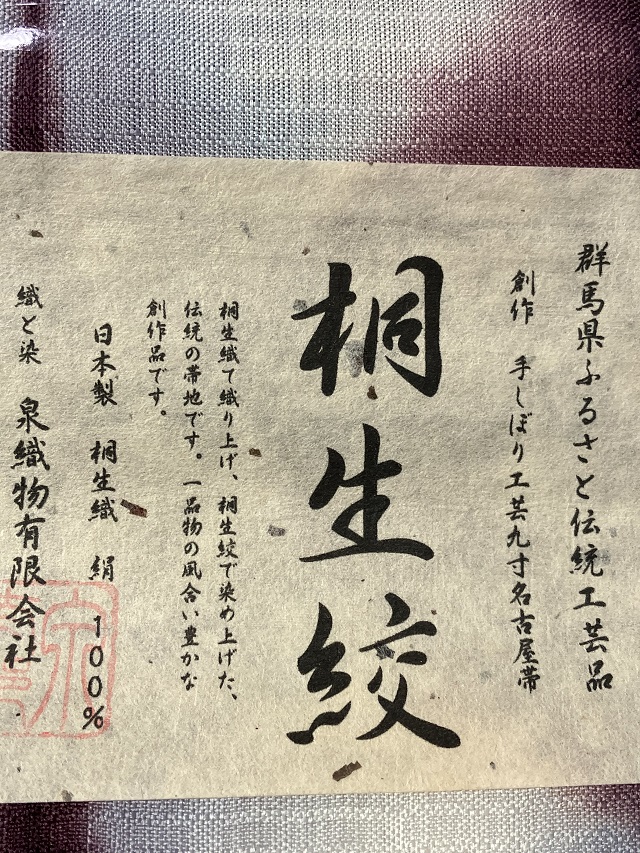 群馬県ふるさと伝統工芸品
創作 手しぼり工芸九寸名古屋帯
桐生絞
桐生織て織り上げ、桐生絞で染め上げた、
伝統の帯地です。一品物の風合い豊かな
創作品です。
日本製 桐生織 絹 100%
織と染 泉織物有限会社